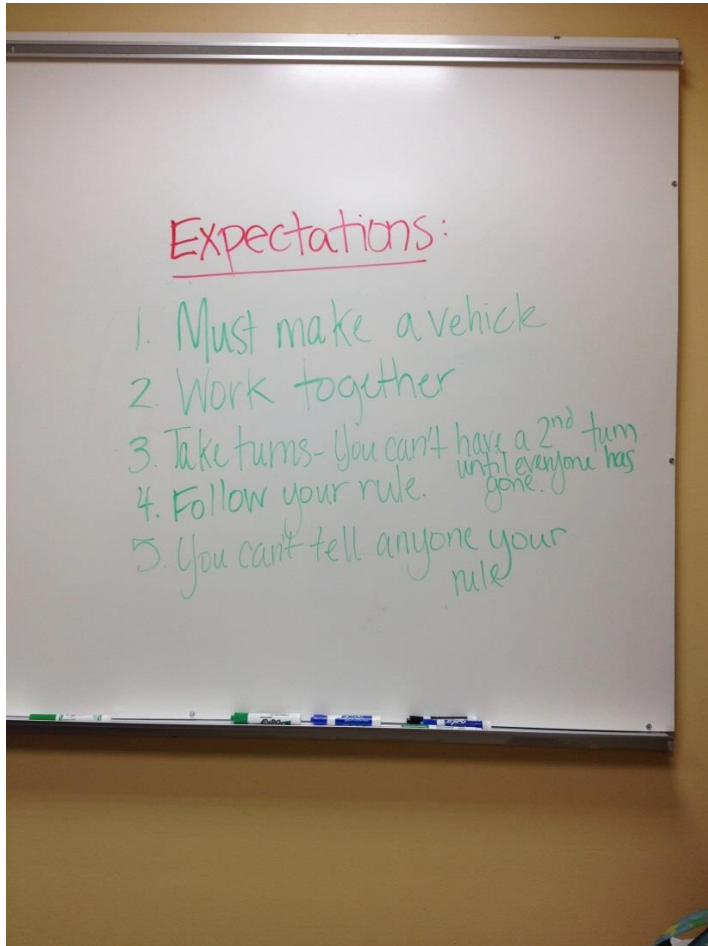 Expectations:
1. Must make a vehicle
2. Work together
3. Take turns- You can't have a 2nd turn
until everyone has
gone.
4. Follow your rule.
5. You can't tell anyone your
rule